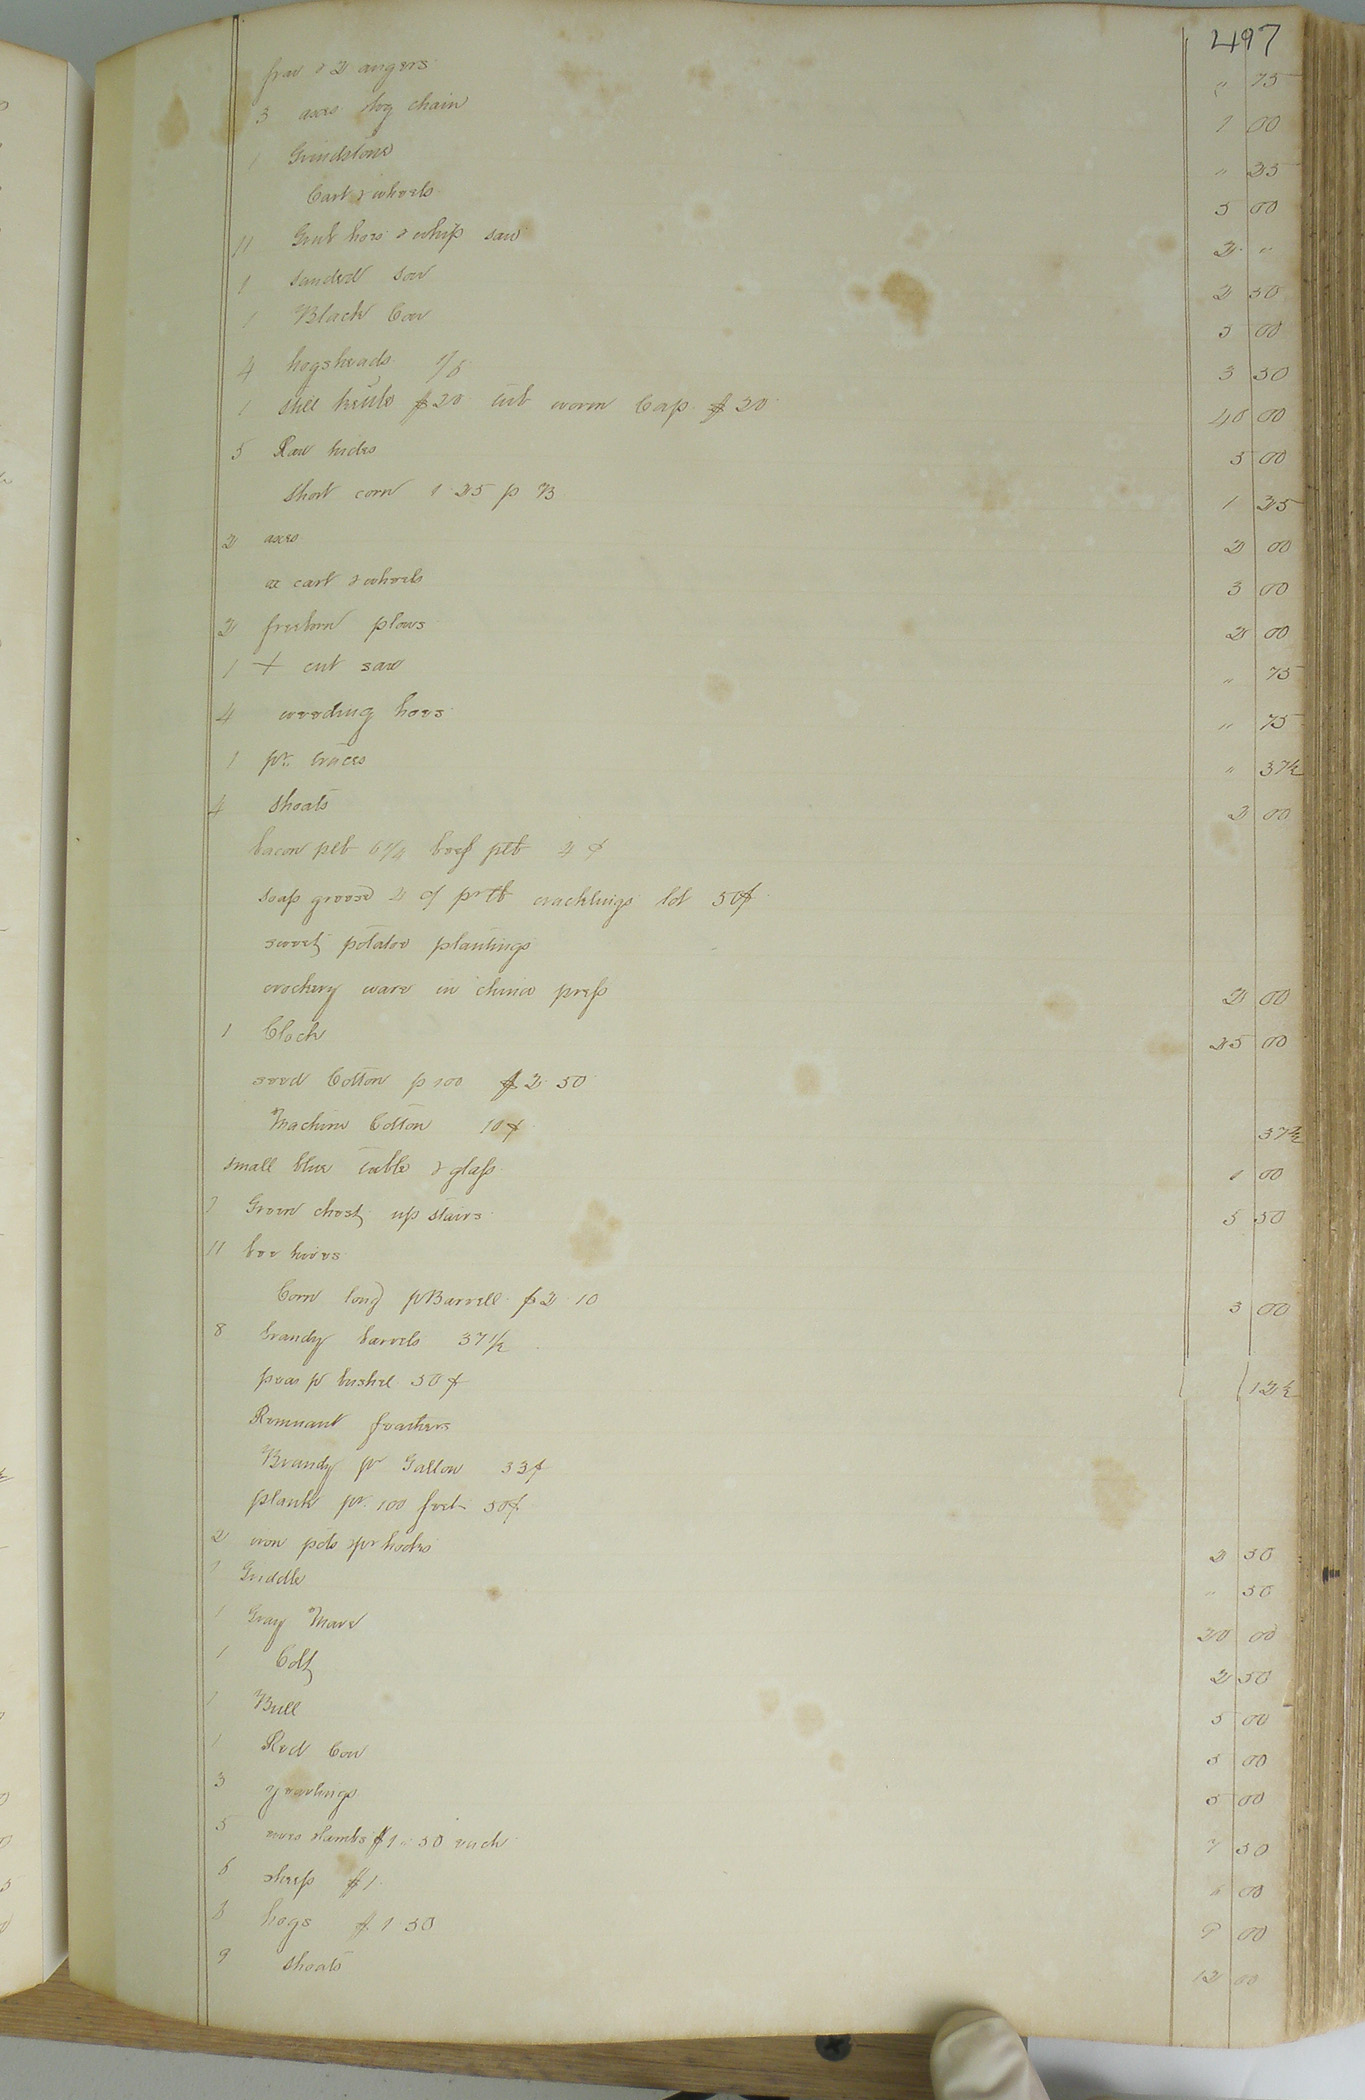 497
fraw & 2 augers " 75
3 axes log chain 1 00
1 Grindstone " 25
Cart & wheels 5 00
11 Grub hoes & whip saw 2 "
1 sanded sow 2 50
1 Black Cow 5 00
4 hogsheads 3 50
1 still kettle $20 tub worm Cap $20 40 00
5 Raw hides 5 00
Short corn 1 25 p B 1 25
2 axes 2 00
ox cart & wheels 3 00
2 freeborn plows 2 00
1 + cut saw " 75
4 weeding hoes " 75
1 pr. traces " 37½
4 shoats 2 00
bacon plb 6¼ beef plb 4 ¢
soap grease 2 ¢ pr lb cracklings lot 50¢
sweet potatoe plantings
crockery ware in china press 2 00
1 Clock 25 00
seed Cotton p 100 $2 50
Machine Cotton 10¢ 37½
small blue table & glass 1 00
1 Green chest up stairs 5 50
11 bee hives
Corn long pr Barrell $2 10 3 00
8 brandy barrels 37½
peas pr bushel 50¢ 12½
Remnant feathers
Brandy pr Gallon 33¢
plank pr. 100 feet 50¢
2 iron pots & pr hooks 2 50
1 Griddle " 50
1 Gray Mare 20 00
1 Colt 2 50
1 Bull 5 00
1 Red Cow 5 00
3 yearlings 5 00
5 ewes & lambs $1 " 50 each 7 50
6 sheep $1 6 00
hogs $1 50 9 00
9 shoats 12 00